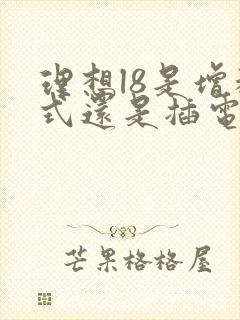 理想l8是增
式還是插電
芒果格格屋